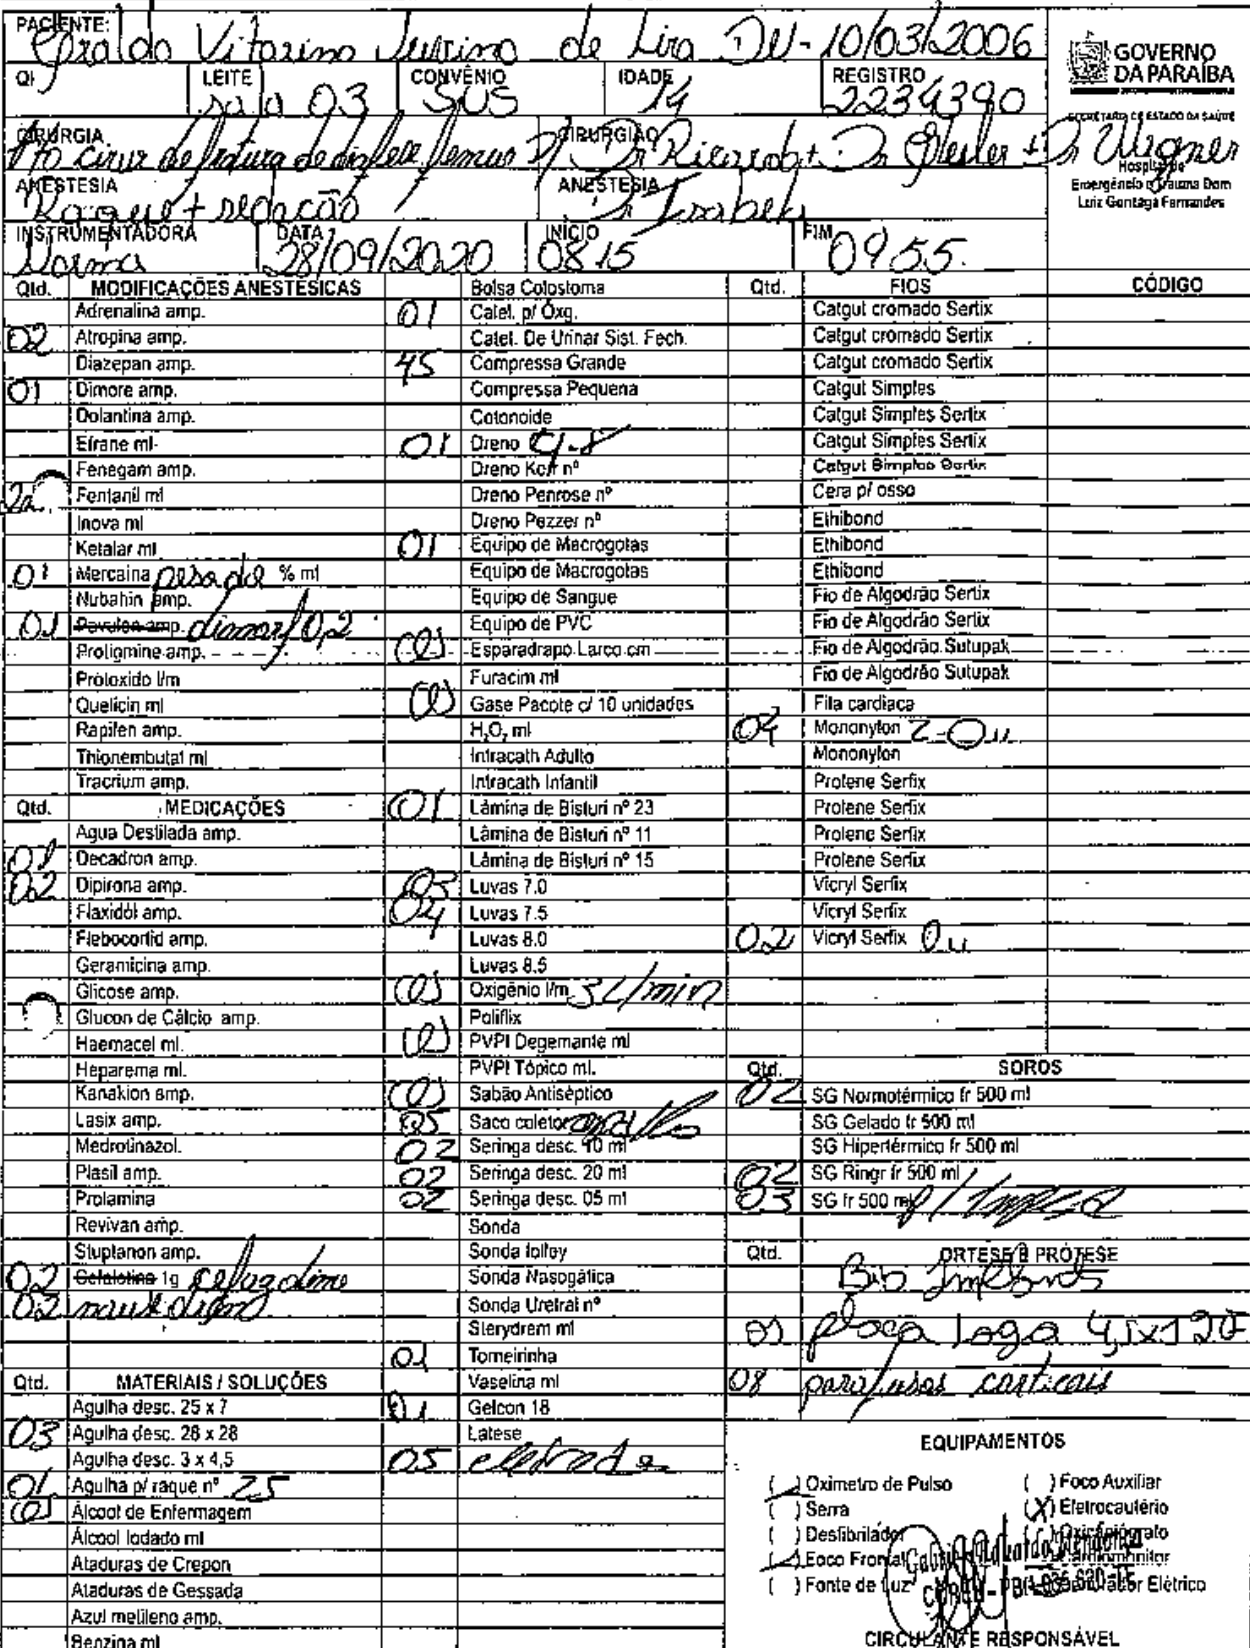 PACIENTE: Geraldo Vitorino Juvino de Lira DN- 10/03/2006
GOVERNO DA PARAÍBA
SECRETARIA DE ESTADO DA SAÚDE
Hospital de Emergência e Trauma Dom Luiz Gonzaga Fernandes
LEITE sala 03 CONVÊNIO SUS IDADE 14 REGISTRO 2234390
CIRURGIA Tto cirur de fratura de diafise femur CIRURGIÃO Dr Ricardo + Dr + Dr Wagner
ANESTESIA Raque + sedação ANESTESIA Dr Isabely
INSTRUMENTADORA Norma DATA 28/09/2020 INÍCIO 08:15 FIM 09:55.
Qtd. MODIFICAÇÕES ANESTÉSICAS
Adrenalina amp.
02 Atropina amp.
Diazepan amp.
01 Dimore amp.
Dolantina amp.
Efrane ml
Fenegam amp.
Fentanil ml
Inova ml
Ketalar ml
01 Mercaina pesada % ml
Nubahin amp.
01 Pavulon amp. dimorf 0,2
Protigmine amp.
Protoxido l/m
Quelicin ml
Rapifen amp.
Thionembutal ml
Tracrium amp.
Qtd. MEDICAÇÕES
Agua Destilada amp.
01 Decadron amp.
02 Dipirona amp.
Flaxidól amp.
Flebocortid amp.
Geramicina amp.
Glicose amp.
Glucon de Cálcio amp.
Haemacel ml.
Heparema ml.
Kanakion amp.
Lasix amp.
Medrotinazol.
Plasil amp.
Prolamina
Revivan amp.
Stuplanon amp.
02 Cefalotina 1g cefazolina
02 nausedron
Qtd. MATERIAIS / SOLUÇÕES
Agulha desc. 25 x 7
03 Agulha desc. 28 x 28
Agulha desc. 3 x 4,5
01 Agulha p/ raque nº 25
01 Álcool de Enfermagem
Álcool Iodado ml
Ataduras de Crepon
Ataduras de Gessada
Azul metileno amp.
Benzina ml
Bolsa Colostoma
01 Catel. p/ Oxg.
Catel. De Urinar Sist. Fech.
45 Compressa Grande
Compressa Pequena
Cotonoide
01 Dreno
Dreno Kerr nº
Dreno Penrose nº
Dreno Pezzer nº
01 Equipo de Macrogotas
Equipo de Macrogotas
Equipo de Sangue
Equipo de PVC
01 Esparadrapo Larco cm
Furacim ml
01 Gase Pacote c/ 10 unidades
H₂O₂ ml
Intracath Adulto
Intracath Infantil
01 Lâmina de Bisturi nº 23
Lâmina de Bisturi nº 11
Lâmina de Bisturi nº 15
Luvas 7.0
04 Luvas 7.5
Luvas 8.0
Luvas 8.5
01 Oxigênio l/m 3L/min
Poliflix
01 PVPI Degemante ml
PVPI Tópico ml.
01 Sabão Antiséptico
05 Saco coletor
02 Seringa desc. 10 ml
02 Seringa desc. 20 ml
02 Seringa desc. 05 ml
Sonda
Sonda folley
Sonda Nasogática
Sonda Uretral nº
Sterydrem ml
01 Torneirinha
Vaselina ml
01 Gelcon 18
Latese
05 eletrodos
Qtd. FIOS CÓDIGO
Catgut cromado Sertix
Catgut cromado Sertix
Catgut cromado Sertix
Catgut Simples
Catgut Simples Sertix
Catgut Simples Sertix
Catgut Simples Sertix
Cera p/ osso
Ethibond
Ethibond
Ethibond
Fio de Algodrão Sertix
Fio de Algodrão Sertix
Fio de Algodrão Sutupak
Fio de Algodrão Sutupak
Fila cardiaca
04 Mononylon 2-0
Mononylon
Protene Serfix
Prolene Serfix
Prolene Serfix
Prolene Serfix
Vicryl Serfix
Vicryl Serfix
02 Vicryl Serfix 0
Qtd. SOROS
02 SG Normotérmico fr 500 ml
SG Gelado fr 500 ml
SG Hipertérmico fr 500 ml
02 SG Ringr fr 500 ml
03 SG fr 500 ml
Qtd. ORTESE E PRÓTESE
01 placa
08 parafusos corticais
EQUIPAMENTOS
Oximetro de Pulso ( ) Foco Auxiliar
( ) Serra (X) Eletrocautério
( ) Desfibrilador
Foco Frontal
( ) Fonte de Luz Elétrico
CIRCULANTE RESPONSÁVEL